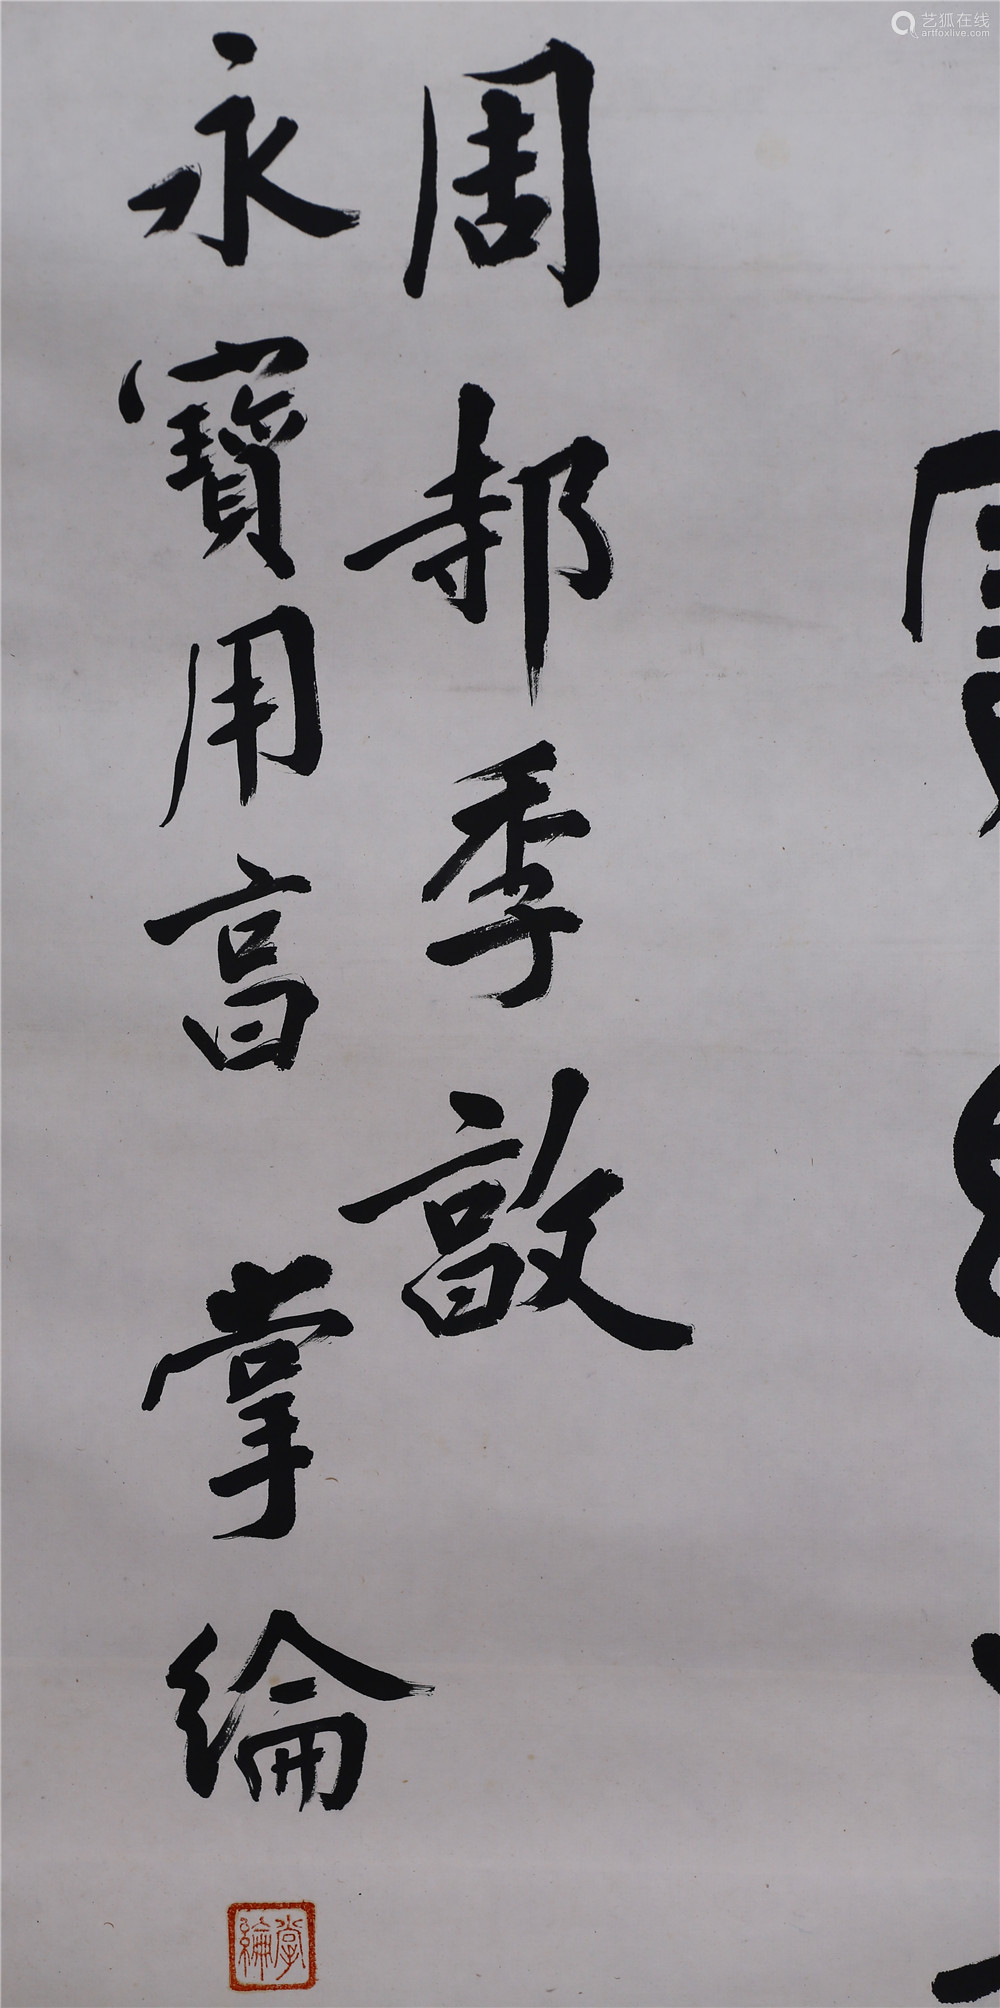 周邿季敦
永寶用亯 掌綸
掌綸
艺狐在线
artfoxlive.com